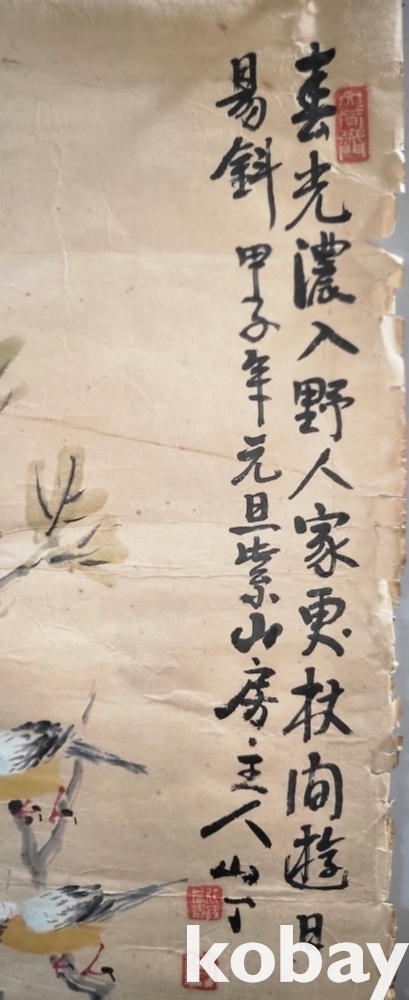 春光濃入野人家更杖間遊日
易斜 甲子年元旦紫山房主人
kobay